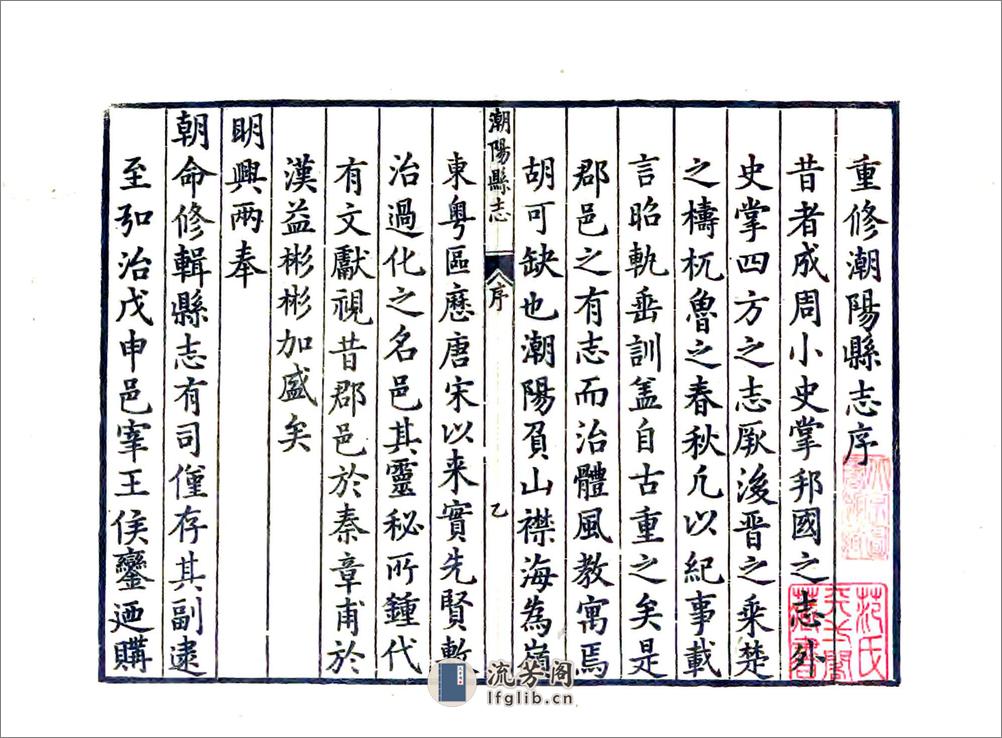 重修潮陽縣志序
昔者成周小史掌邦國之志外
史掌四方之志厥後晋之乘楚
之檮杌魯之春秋凡以紀事載
言昭軌垂訓盖自古重之矣是
郡邑之有志而治體風教寓焉
胡可缺也潮陽負山襟海為嶺
潮陽縣志
序
乙
東粤區歷唐宋以来實先賢蹔
治過化之名邑其靈秘所鍾代
有文獻視昔郡邑於秦章甫於
漢益彬彬加盛矣
明興兩奉
朝命修輯縣志有司僅存其副逮
至弘治戊申邑宰王侯鑾迺購
范氏天一閣藏書
流芳阁
lfglib.cn